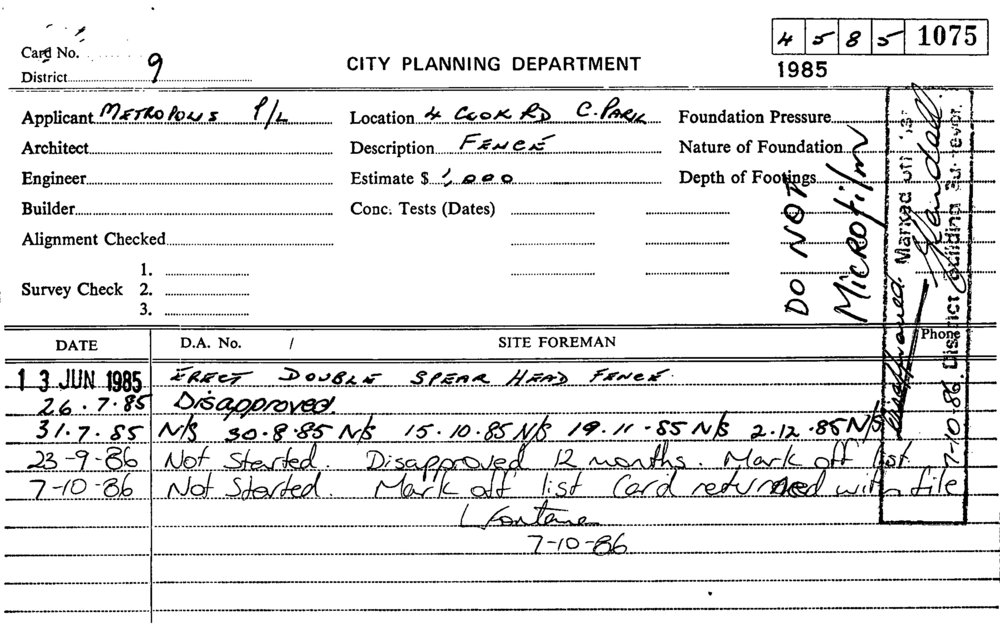 4 5 8 5 1075
1985
Card No.
District 9
CITY PLANNING DEPARTMENT
Applicant METROPOLIS P/L
Location 4 COOK RD C. PARK
Foundation Pressure
Architect
Description FENCE
Nature of Foundation
Engineer
Estimate $ 1,000
Depth of Footings
Builder
Conc. Tests (Dates)
Alignment Checked
Survey Check
1.
2.
3.
DO NOT
MICROfilm
Disapproved. Marked off list
7-10-86. District Building Surveyor.
DATE D.A. No. / SITE FOREMAN Phone
13 JUN 1985 ERECT DOUBLE SPEAR HEAD FENCE.
26.7.85 Disapproved.
31.7.85 N/S 30.8.85 N/S 15.10.85 N/S 19.11.85 N/S 2.12.85 N/S
23-9-86 Not Started. Disapproved 12 months. Mark off list.
7-10-86 Not Started. Mark off list Card returned with file
7-10-86